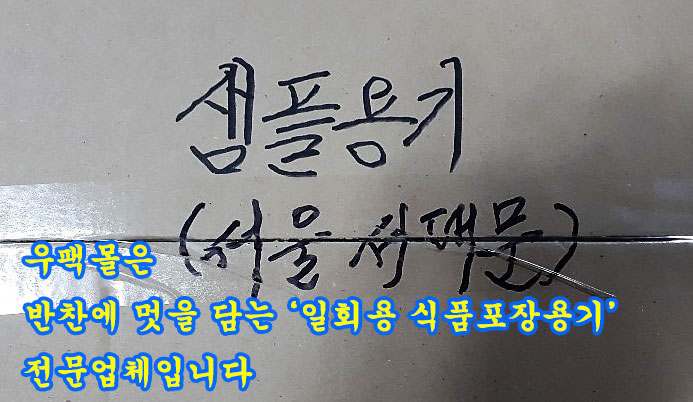 샘플용기
(서울 서대문)
우팩몰은
반찬에 멋을 담는 '일회용 식품포장용기'
전문업체입니다